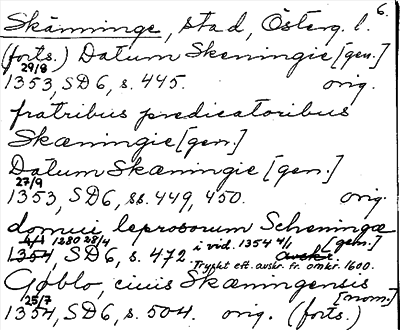 Skänninge, stad, Österg. l. 6.
(forts.) Datum Skeningie [gen.]
29/8
1353, SD6, s. 445. orig.
fratribus predicatoribus
Skæningie [gen.]
Datum Skæningie [gen.]
27/9
1353, SD6, ss. 449, 450. orig.
domui leprosorum Scheningæ
4/1 1280 28/4 i vid. 1354 4/1 [gen.]
1354, SD6, s. 472. Avskr.
Tryckt eft. avskr. fr. omkr. 1600.
Gøblo, ciuis Skæningensis
25/7 [nom.]
1354, SD6, s. 504. orig. (forts.)